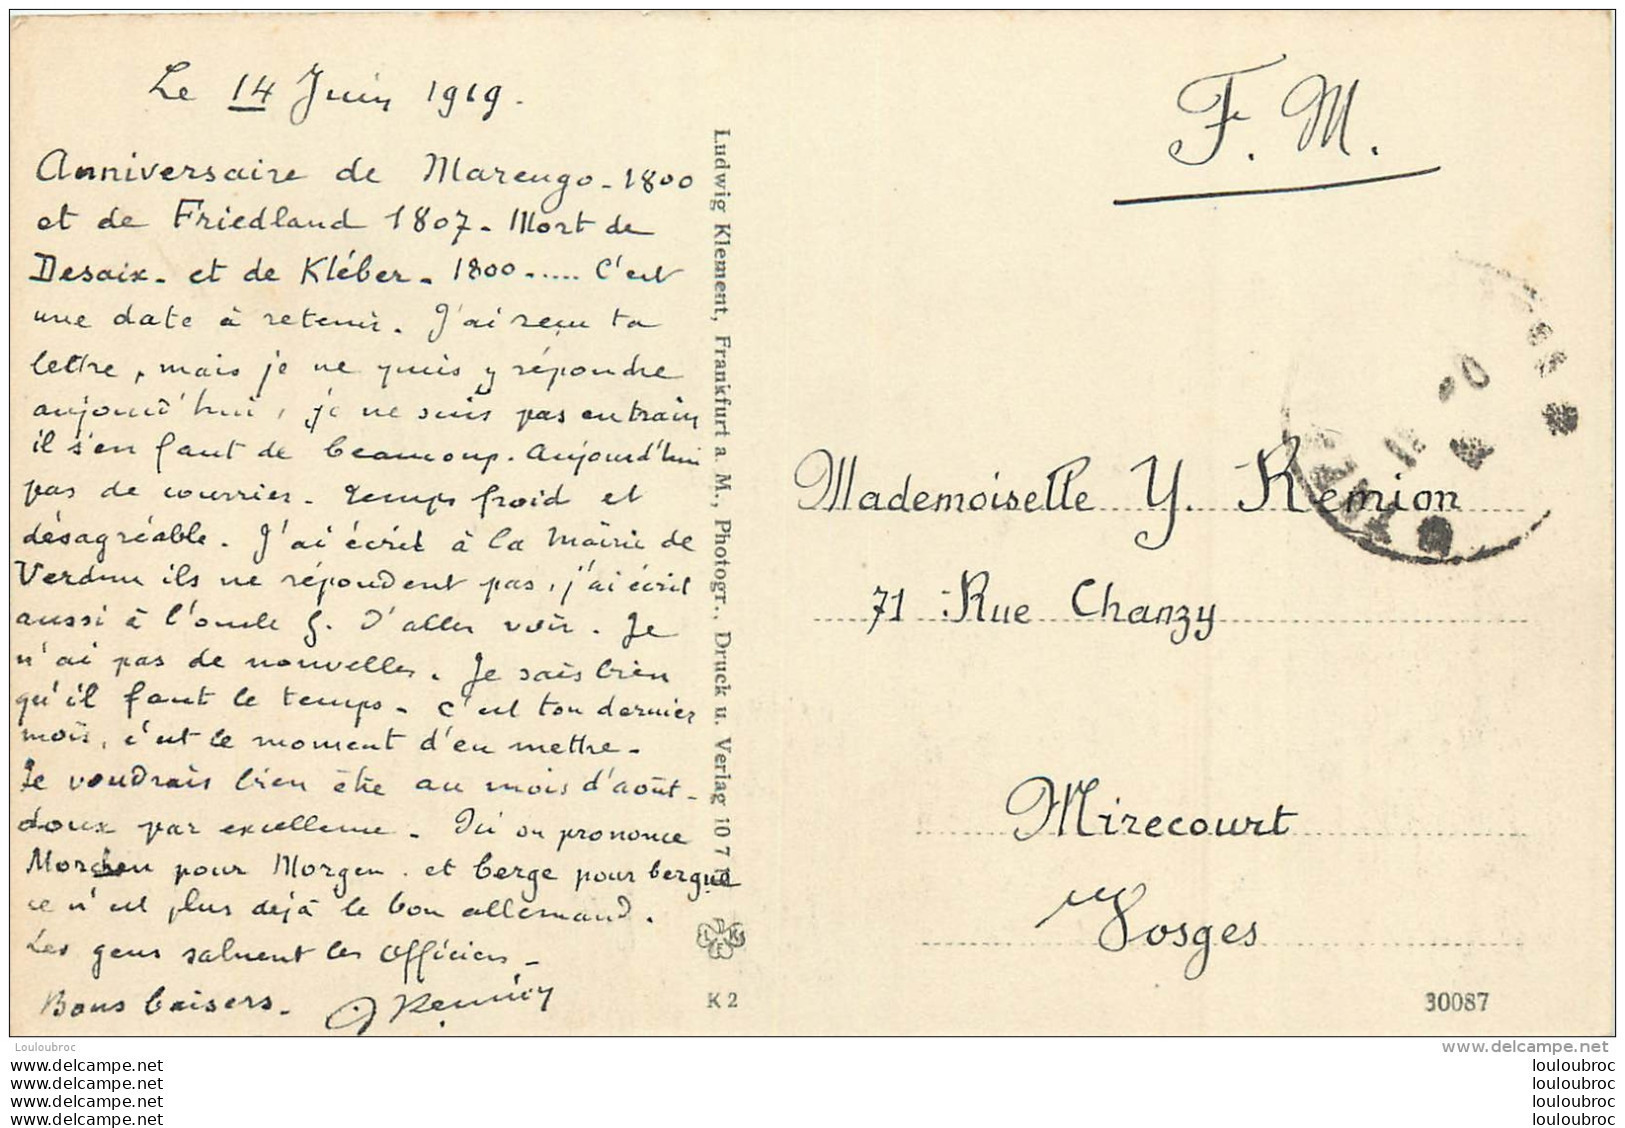 Le 14 Juin 1919.
Anniversaire de Marengo - 1800
et de Friedland 1807 - Mort de
Desaix - et de Kléber - 1800 - .... C'est
une date à retenir. J'ai reçu ta
lettre, mais je ne puis y répondre
aujourd'hui, je ne suis pas en train
il s'en faut de beaucoup. Aujourd'hui
pas de courrier. Temps froid et
désagréable. J'ai écrit à la Mairie de
Verdun ils ne répondent pas, j'ai écrit
aussi à l'oncle G. d'aller voir. Je
n'ai pas de nouvelles. Je sais bien
qu'il faut le temps - c'est ton dernier
mois, c'est le moment d'en mettre -
Je voudrais bien être au mois d'août -
doux par excellence - Ici on prononce
Morchen pour Morgen. et berge pour bergue
ce n'est plus déjà le bon allemand.
Les gens saluent les officiers -
Bons baisers. Remion
Ludwig Klement, Frankfurt a. M., Photogr., Druck u. Verlag 10 7
K 2
F. M.
Mademoiselle Y. Remion
71 Rue Chanzy
Mirecourt
Vosges
30087
Louloubroc
www.delcampe.net
www.delcampe.net
www.delcampe.net
www.delcampe.net
www.delcampe.net
louloubroc
louloubroc
louloubroc
louloubroc